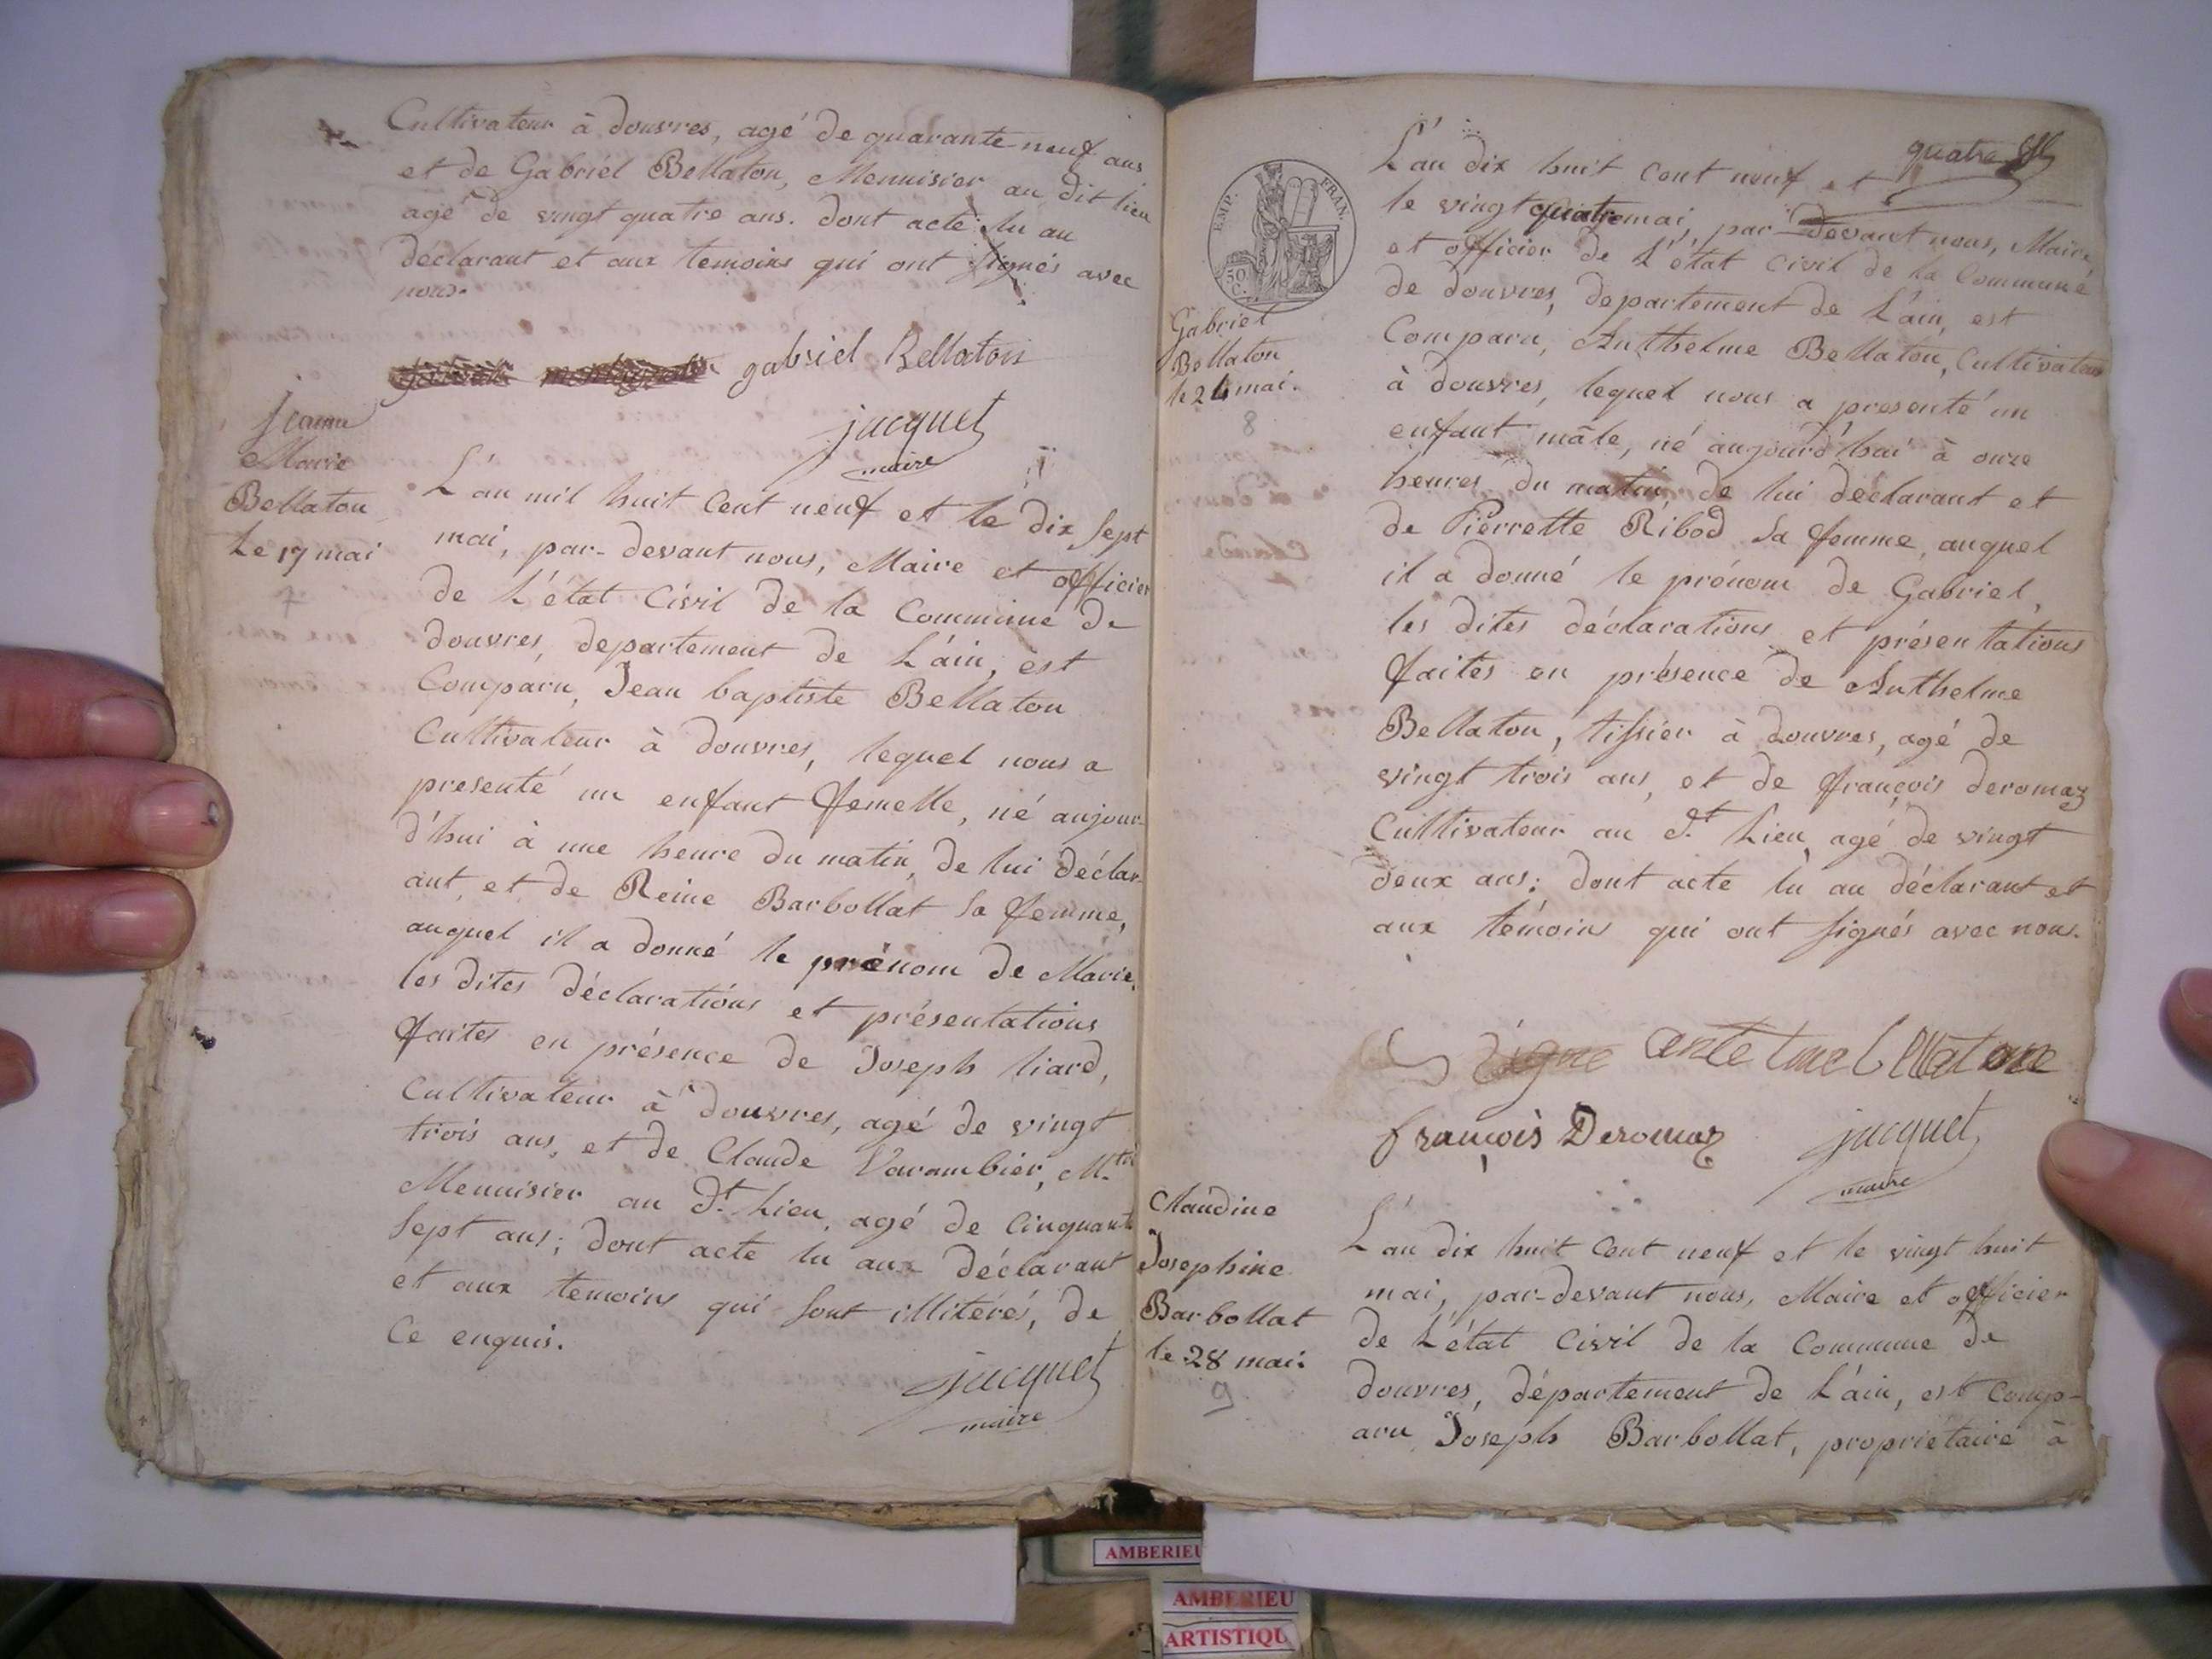 Cultivateur à douvres, agé de quarante neuf ans
et de Gabriel Bellaton, Menuisier au dit lieu
agé de vingt quatre ans. dont acte lu au
déclarant et aux temoins qui ont signés avec
nous.
gabriel Bellaton
jacquet
maire
Jeanne
Marie
Bellaton
Le 17 mai
7
L'an mil huit Cent neuf et le dix sept
mai, par-devant nous, Maire et officier
de L'état Civil de la Commune de
douvres, departement de L'ain, est
Comparu, Jean baptiste Bellaton
Cultivateur à douvres, lequel nous a
presenté un enfant femelle, né aujour-
d'hui à une heure du matin, de lui déclar-
ant, et de Reine Barbollat sa femme,
auquel il a donné le prénom de Marie.
les dites déclarations et présentations
faites en présence de Joseph liard,
Cultivateur à douvres, agé de vingt
trois ans, et de Claude Varambier, M.tre
Menuisier au d.t Lieu, agé de Cinquante
sept ans; dont acte lu aux déclarant
et aux temoins qui sont illitérés, de
Ce enquis.
jacquet
maire
quatre
EMP. FRAN.
50 C.
Gabriel
Bellaton
le 24 mai.
8
L'an dix huit Cent neuf et
le vingt quatre mai, par-devant nous, Maire,
et officier de L'état Civil de la Commune
de douvres, departement de L'ain, est
Comparu, Anthelme Bellaton, Cultivateur
à douvres, lequel nous a presenté un
enfant mâle, né aujourd'hui à onze
heures du matin, de lui déclarant et
de Pierrette Ribod sa femme, auquel
il a donné le prénom de Gabriel,
les dites déclarations et présentations
faites en présence de Anthelme
Bellaton, tissier à douvres, agé de
vingt trois ans, et de françois deromaz
Cultivateur au d.t Lieu, agé de vingt
deux ans; dont acte lu au déclarant et
aux témoins qui ont signés avec nous.
françois Deromaz
jacquet
maire
Claudine
Josephine
Barbollat
le 28 mai.
9
L'an dix huit Cent neuf et le vingt huit
mai, par-devant nous, Maire et officier
de L'état Civil de la Commune de
douvres, département de L'ain, est Comp-
aru Joseph Barbollat, propriétaire à
AMBERIEU
AMBERIEU
ARTISTIQU